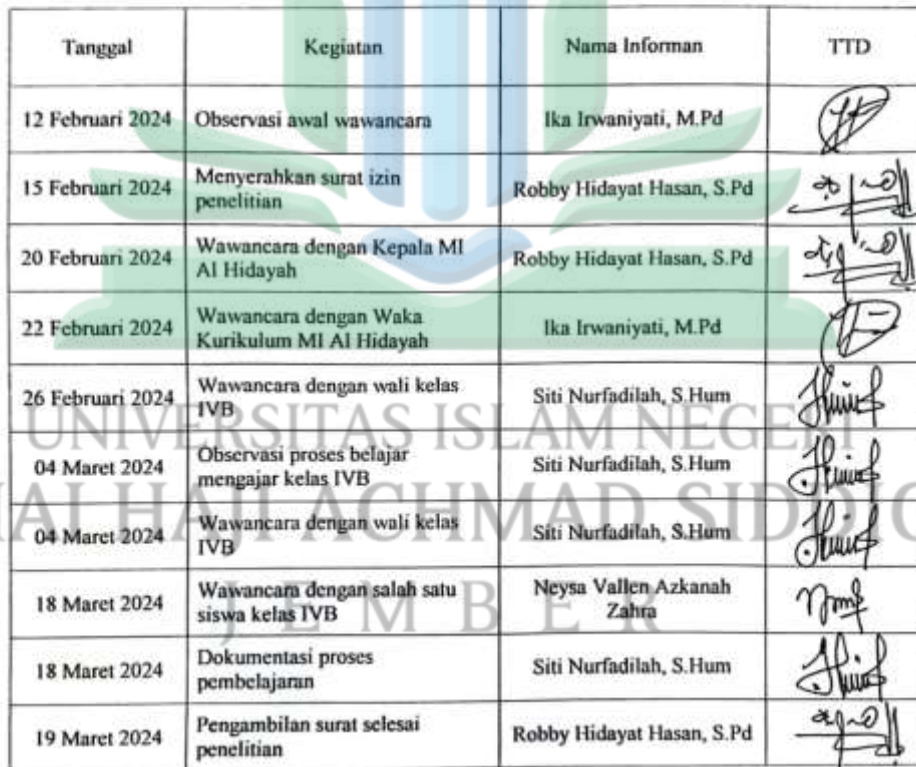 Tanggal Kegiatan Nama Informan TTD
12 Februari 2024 Observasi awal wawancara Ika Irwaniyati, M.Pd
15 Februari 2024 Menyerahkan surat izin
penelitian Robby Hidayat Hasan, S.Pd
20 Februari 2024 Wawancara dengan Kepala MI
Al Hidayah Robby Hidayat Hasan, S.Pd
22 Februari 2024 Wawancara dengan Waka
Kurikulum MI Al Hidayah Ika Irwaniyati, M.Pd
26 Februari 2024 Wawancara dengan wali kelas
IVB Siti Nurfadilah, S.Hum
UNIVERSITAS ISLAM NEGERI
04 Maret 2024 Observasi proses belajar
mengajar kelas IVB Siti Nurfadilah, S.Hum
AI HAJI ACHMAD SIDDIQ
04 Maret 2024 Wawancara dengan wali kelas
IVB Siti Nurfadilah, S.Hum
18 Maret 2024 Wawancara dengan salah satu
siswa kelas IVB Neysa Vallen Azkanah
Zahra
JEMBER
18 Maret 2024 Dokumentasi proses
pembelajaran Siti Nurfadilah, S.Hum
19 Maret 2024 Pengambilan surat selesai
penelitian Robby Hidayat Hasan, S.Pd